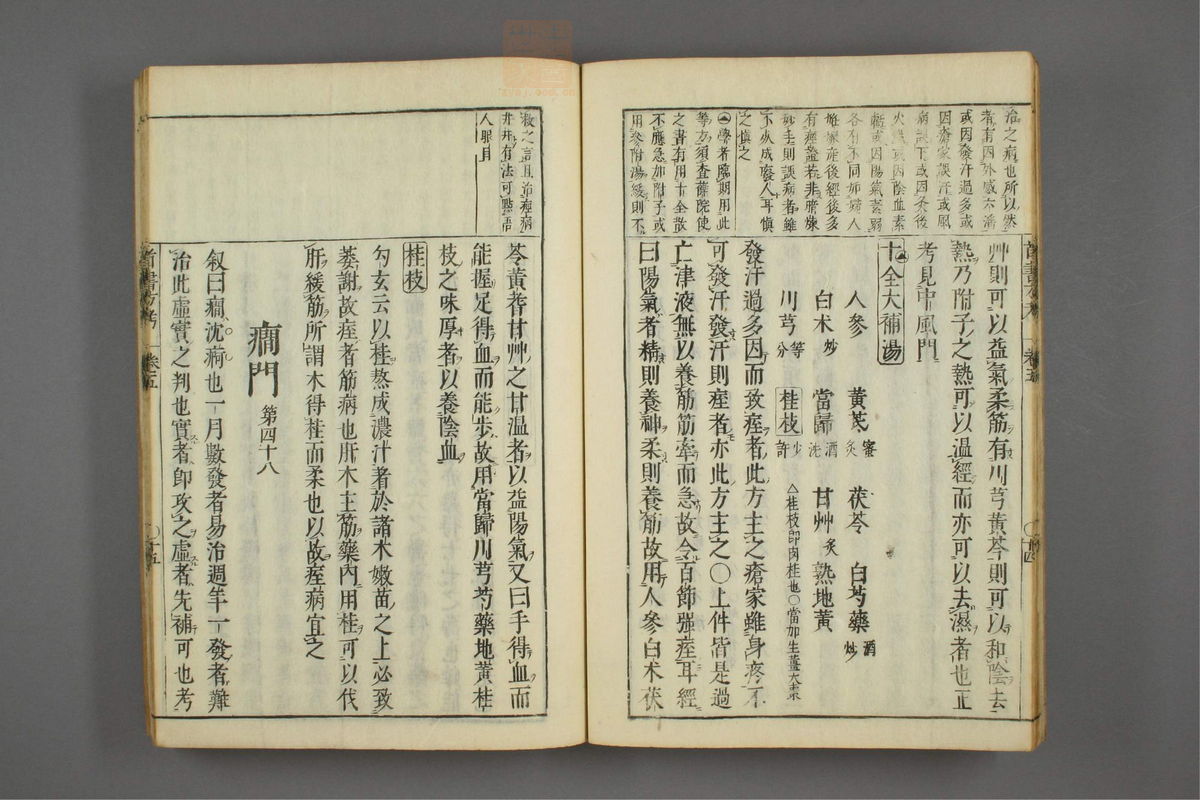 治之病也所以然
者有因外感六滛
或因發汗過多或
因瘡家誤汗或風
病誤下或因灸後
火熾或因陰血素
虧或因陽氣素弱
各有不同如婦人
施於產後經後多
有痙證若非精煉
妙手則誤病者雖
不死成癈人耳慎
之慎之
學者臨期用此
等方須查薛院使
之書有用十全散
不應急加附子或
用參附湯緩則不
艸則可以益氣柔筋有川芎黃芩則可以和陰去
熱乃附子之熱可以温經而亦可以去濕者也正
考見中風門
十全大補湯
人參 黃芪蜜炙 茯苓 白芍藥酒炒
白术炒 當歸酒洗 甘艸炙 熟地黃
川芎等分 桂枝少許 △桂枝即肉桂也○當加生薑大棗
發汗過多因而致痙者此方主之瘡家雖身疼不
可發汗發汗則痙者亦此方主之○上件皆是過
亡津液無以養筋筋牽而急故令百節強痙耳經
曰陽氣者精則養神柔則養筋故用人參白术茯
首書方考 卷五 十四
救之言且治痙病
井井有法可點語
人眼目
苓黃茋甘艸之甘温者以益陽氣又曰手得血而
能握足得血而能步故用當歸川芎芍藥地黃桂
枝之味厚者以養陰血
桂枝
勾玄云以桂熬成濃汁者於諸木嫩苗之上必致
萎謝故痙者筋病也肝木主筋藥內用桂可以伐
肝緩筋所謂木得桂而柔也以故痙病宜之
癇門 第四十八
叙曰癇沈痾也一月數發者易治週年一發者難
治此虛實之判也實者即攻之虛者先補可也考
首書方考 卷五 十五